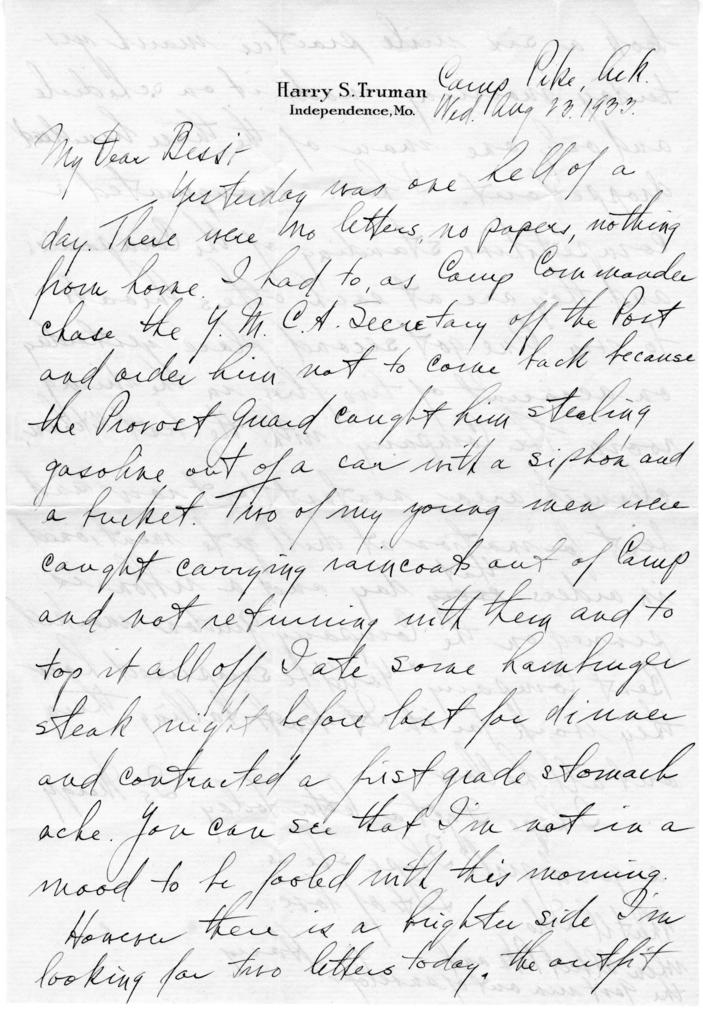 Harry S. Truman
Independence, Mo.
Camp Pike, Ark.
Wed. Aug 23, 1933.
My Dear Bess:-
Yesterday was one hell of a
day. There were no letters, no papers, nothing
from home. I had to, as Camp Commander
chase the Y.M.C.A. Secretary off the Post
and order him not to come back because
the Provost Guard caught him stealing
gasoline out of a car with a siphon and
a bucket. Two of my young men were
caught carrying raincoats out of Camp
and not returning with them and to
top it all off I ate some hamburger
steak night before last for dinner
and contracted a first grade stomach
ache. You can see that I'm not in a
mood to be fooled with this morning.
However there is a brighter side I'm
looking for two letters today. The outfit